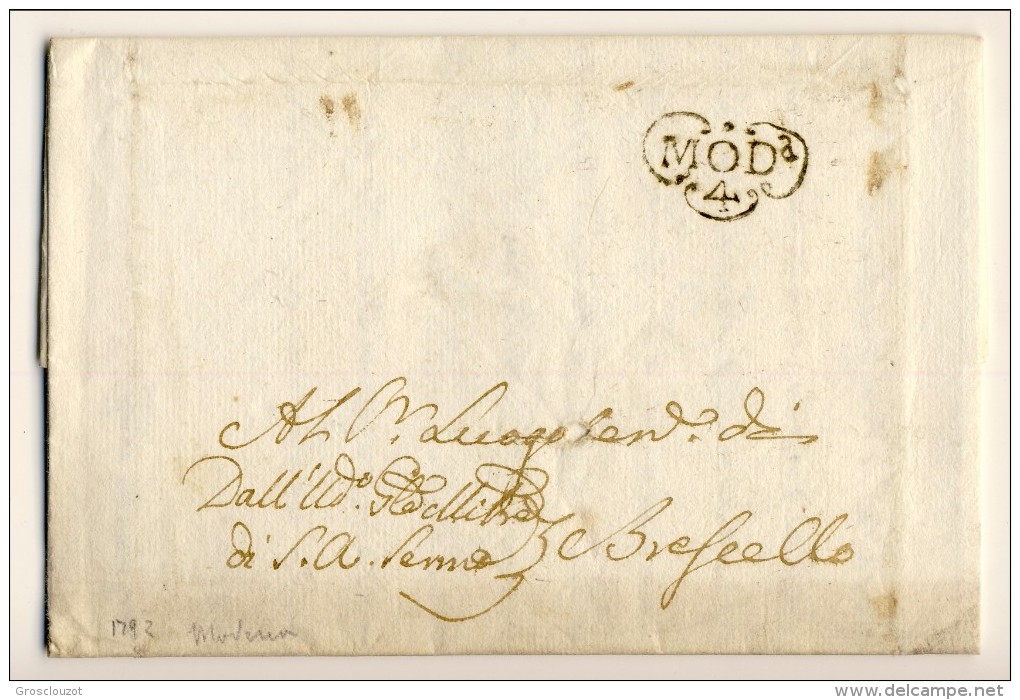 MODª
4
Al Sr. Luogoten.e di
Dall'Udo. Gle Milre
di S. A. Serma
Brescello
1792 Modena
Grosclouzot
www.delcampe.net